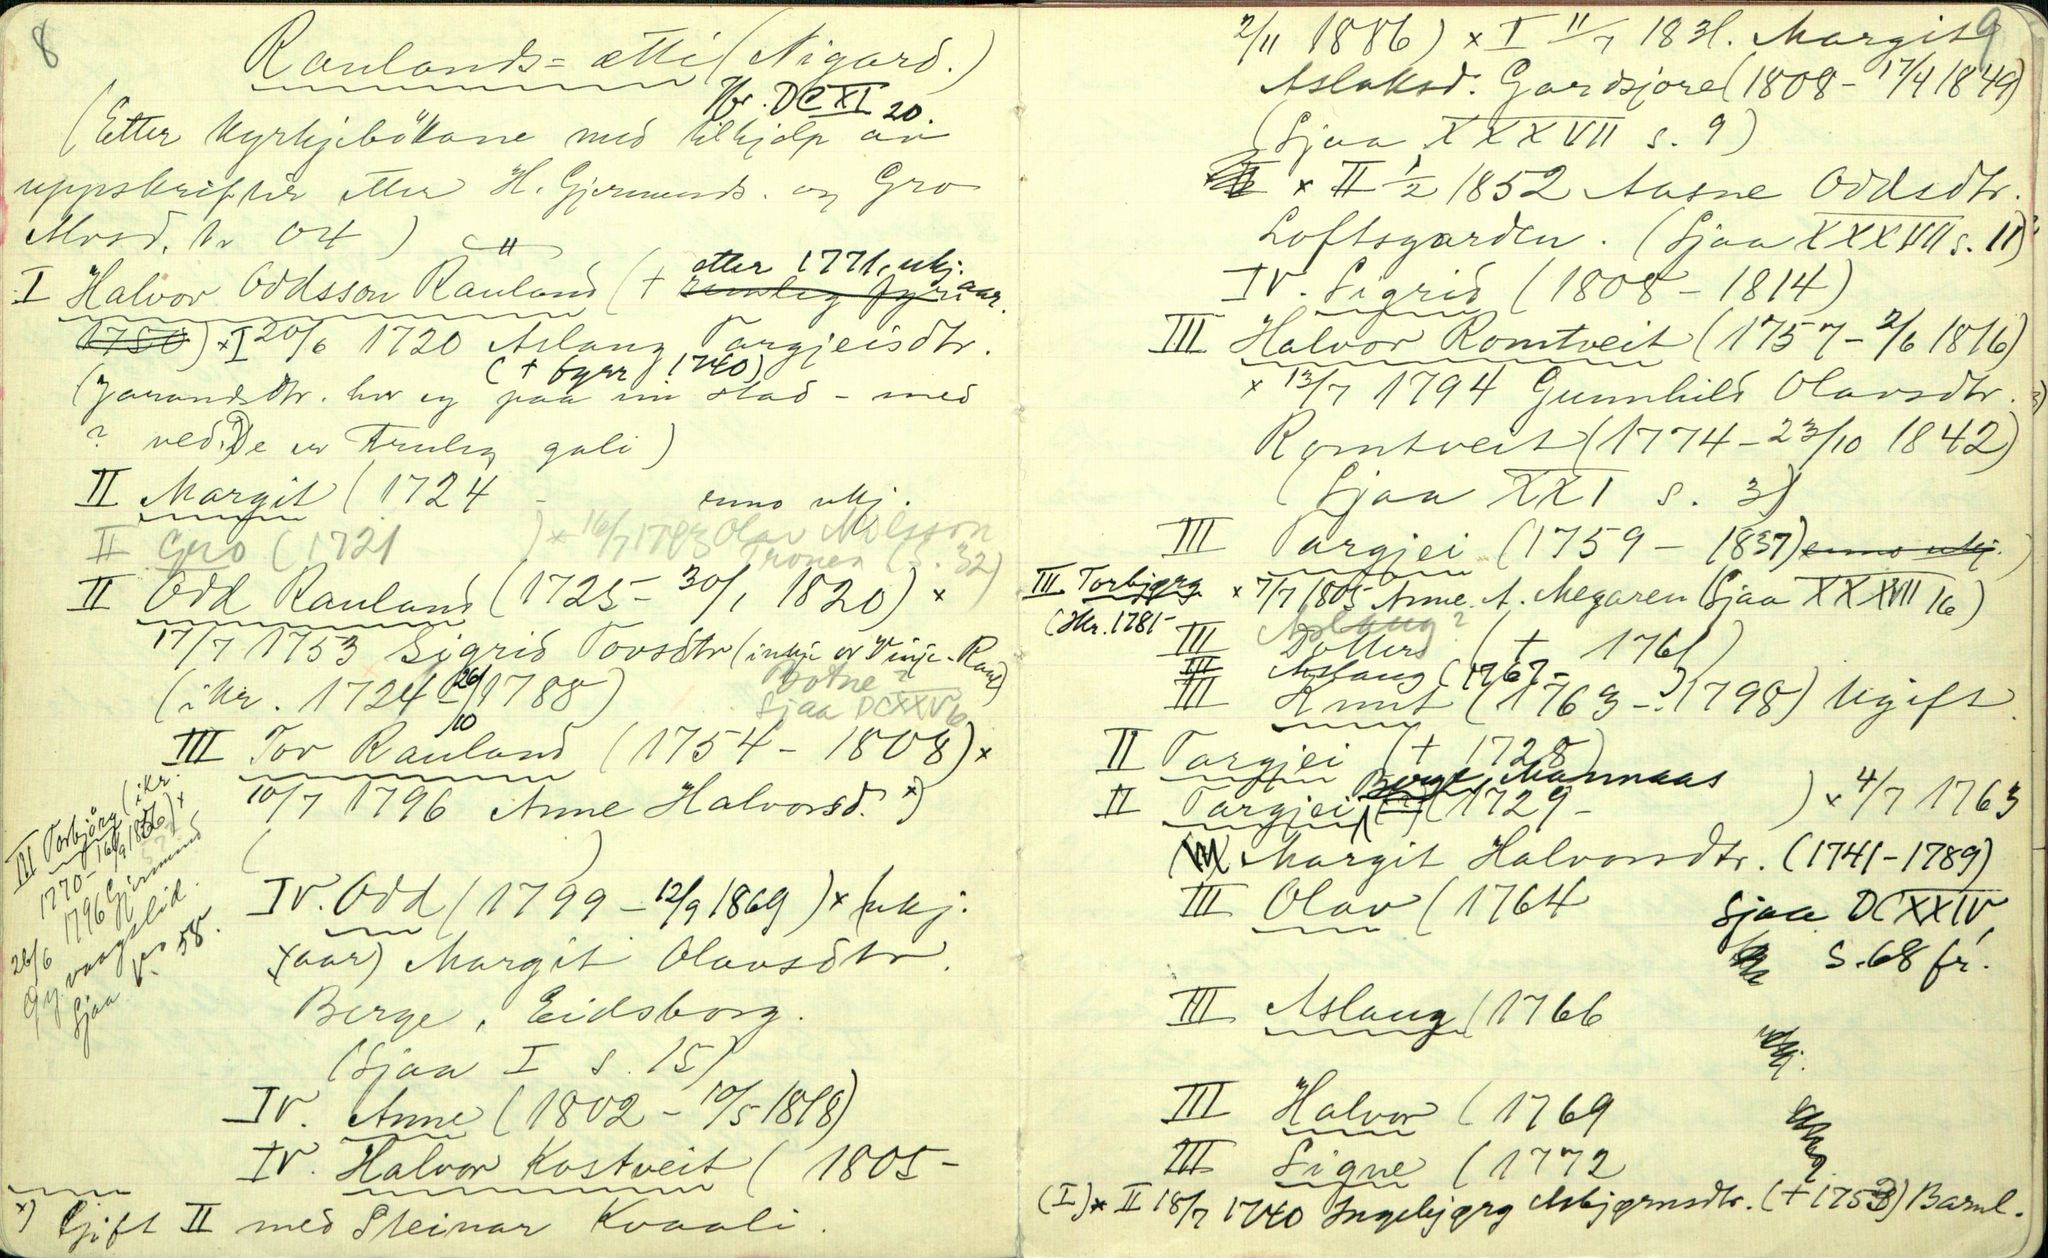 8
Raulands-ætti (Nigard.)
Nr. DCXI 20.
(Etter kyrkjebökane med tilhjelp av
uppskrifter etter H. Gjermunds. og Gro
04)
I Halvor Oddsson Rauland (+ etter 1771, ukj. aar.
1750) × I 20/6 1720 Aslaug Targjeisdtr.
(+ fyrr 1740)
(Jarandsdtr. hev eg paa ein stad - med
? ved. De er truleg gali)
II Margit (1724 - enno ukj.
II Gro (1721 ) × 16/7 1763 Olav Nilsson
(s. 32)
II Odd Rauland (1725 - 30/1 1820) ×
17/7 1753 Sigrid Tovsdtr (inkje or Vinje-Raul)
(ikr. 1724 - 26/10 1788) Botne?
Sjaa DCXXV 6
III Tov Rauland (1754 - 1808) ×
10/7 1796 Anne Halvorsd. ×)
( )
III Torbjörg (ikr.
1770 - 16/9 1826) ×
26/6 1796 Gjermund
Vaagslid.
Sjaa s. 58.
IV. Odd (1799 - 12/9 1869) × (ukj.
aar) Margit Olavsdtr.
Berge, Eidsborg.
(Sjaa I s. 15)
IV. Anne (1802 - 10/5 1818)
IV. Halvor Kostveit (1805 -
×) Gift II med Steinar Kvaali.
9
2/11 1886) × I 11/7 1831. Margit
Aslaksd. Gardsjore (1808 - 17/4 1849)
(Sjaa XXXVII s. 9)
× II 1/2 1852 Aasne Oddsdtr.
Loftsgarden. (Sjaa XXXVII s. 11)
IV. Sigrid (1808 - 1814)
III Halvor Romtveit (1757 - 2/6 1816)
× 13/7 1794 Gunnhild Olavsdtr.
Romtveit (1774 - 23/10 1842)
(Sjaa XXI s. 3)
III Targjei (1759 - 1837) enno ukj.
× 7/7 1805 Anne A. Megaren (Sjaa XXXVII 16)
III Torbjørg
(ikr. 1781 -
Aslaug?
III Dotter (+ 1761)
III Aslaug (1767 - )
III Knut (1763 - 1798) Ugift.
II Targjei (+ 1728)
II Targjei Berge, Mannaas (1729 - ) × 4/7 1763
Margit Halvorsdtr. (1741 - 1789)
III Olav (1764 Sjaa DCXXIV
s. 68 fr.
III Aslaug (1766
ukj.
III Halvor (1769
III Signe (1772
(I) × II 18/7 1740 Ingebjørg Asbjørnsdtr. (+ 1753) Barnl.